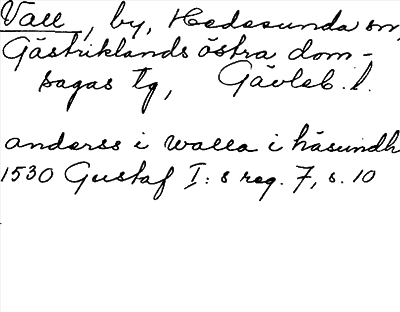 Vall, by, Hedesunda sn,
Gästriklands östra dom-
sagas tg, Gävleb. l.
anderss i walla i häsundh
1530 Gustaf I:s reg. 7, s. 10